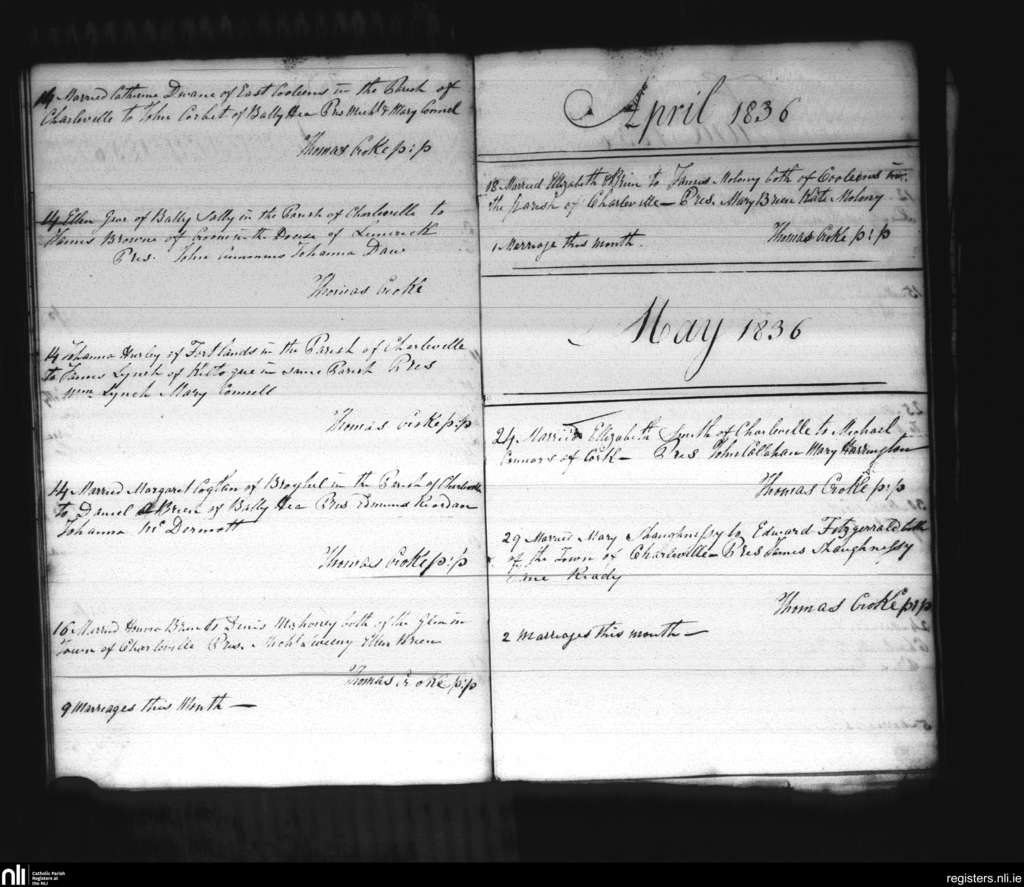 14 Married Catherine Dwane of East Cooleens in the Parish of
Charleville to John Corbet of Bally Hea Pres Michl & Mary Connel
Thomas Croke p:p
14 Ellen Gear of Bally Sally in the Parish of Charleville to
James Browne of Croom in the Diocese of Limerick
Pres. John Johanna Daw
Thomas Croke
14 Johanna Hurley of Fortlands in the Parish of Charleville
to James Lynch of in same Parish Pres
Wm Lynch Mary Connell
Thomas Croke p:p
14 Married Margaret Coghlan of Broghil in the Parish of Charleville
to Daniel OBrien of Bally Hea Pres Edmund Reardan
Johanna Mc Dermott
Thomas Croke p:p
16 Married Honora to Denis Mahoney both of the Glen in
Town of Charleville Pres. Michl Sweeny Ellen Brien
Thomas Croke p:p
9 Marriages this Month —
April 1836
18 Married Elizabeth OBrien to James Molony both of Cooleens in
the parish of Charleville — Pres. Mary Brien Kate Molony
Thomas Croke p:p
1 Marriage this month.
May 1836
24 Married Elizabeth Smith of Charleville to Michael
Connors of Cork — Pres John Callahan Mary Harrington
Thomas Croke p:p
29 Married Mary Shaughnessy to Edward Fitzgerrald both
of the Town of Charleville Pres James Shaughnessy
Ready
Thomas Croke p:p
2 Marriages this month —
nli
Catholic Parish
Registers at
the NLI
registers.nli.ie